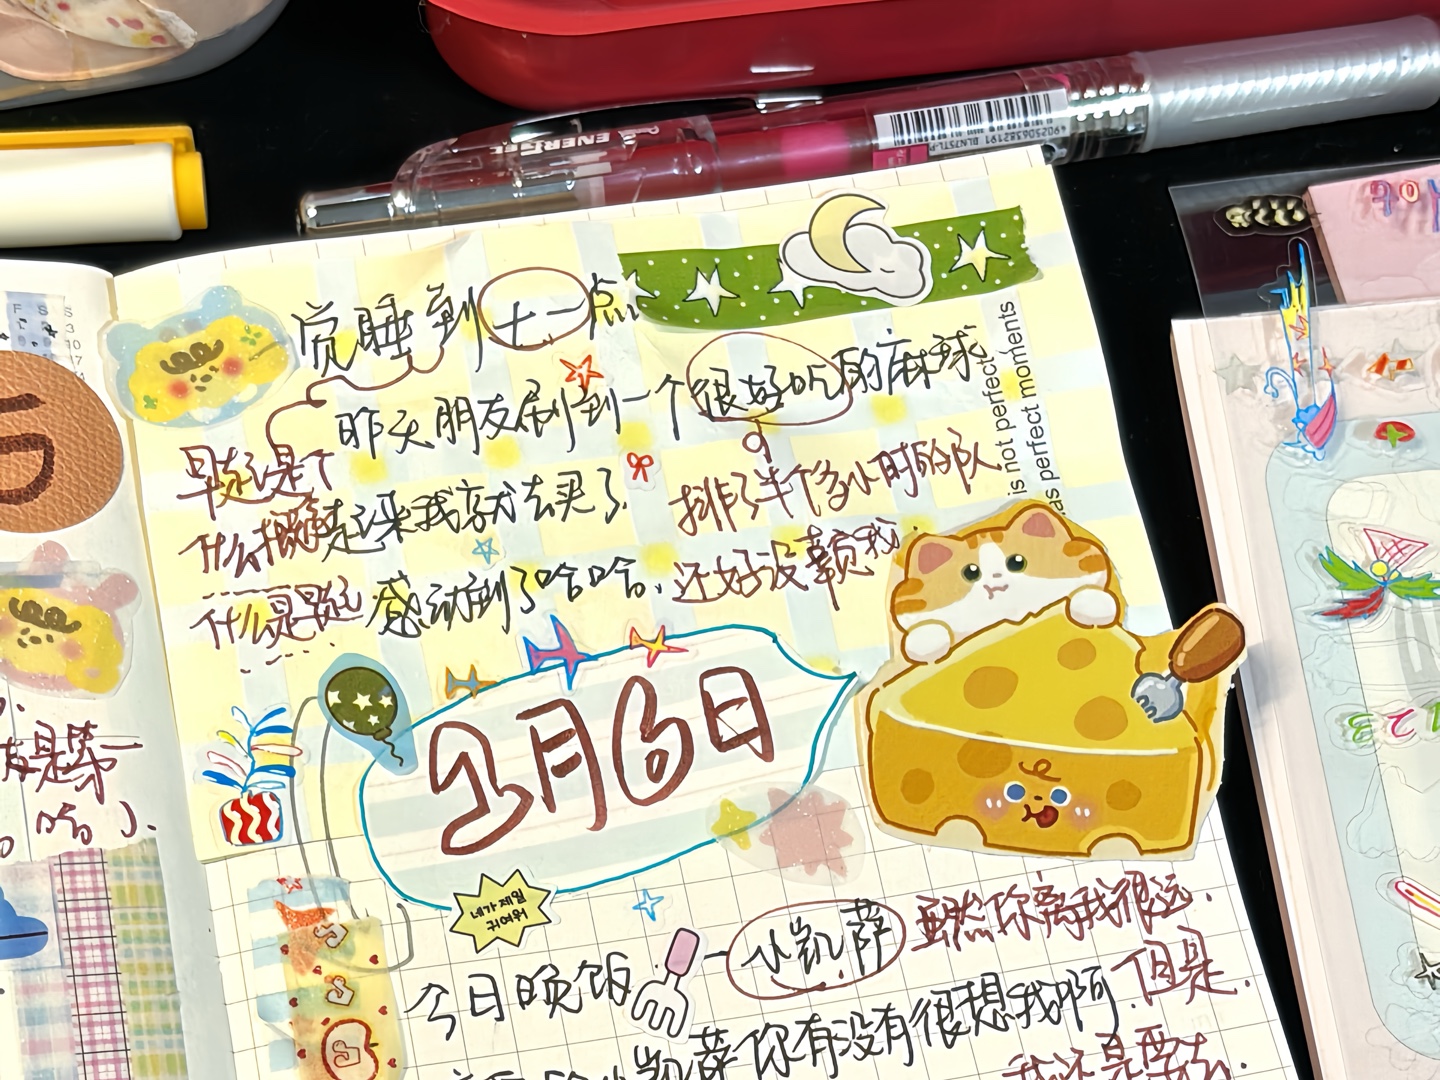 ENERGEL
4902506382191 BLN75TL-P
觉睡到十一点
昨天朋友刷到一个很好吃的麻球
早起是个
什么概念
起来我就去买了. 排了半个多小时的队
什么是早起
感动到了哈哈. 还好没辜负我.
is not perfect
as perfect moments
3月6日
네가 제일
귀여워
今日晚饭
小凯萨 虽然你离我很远.
但是.
凯萨你有没有很想我啊.
我还是要去.
是第一
哈).
F S S
3
10
17